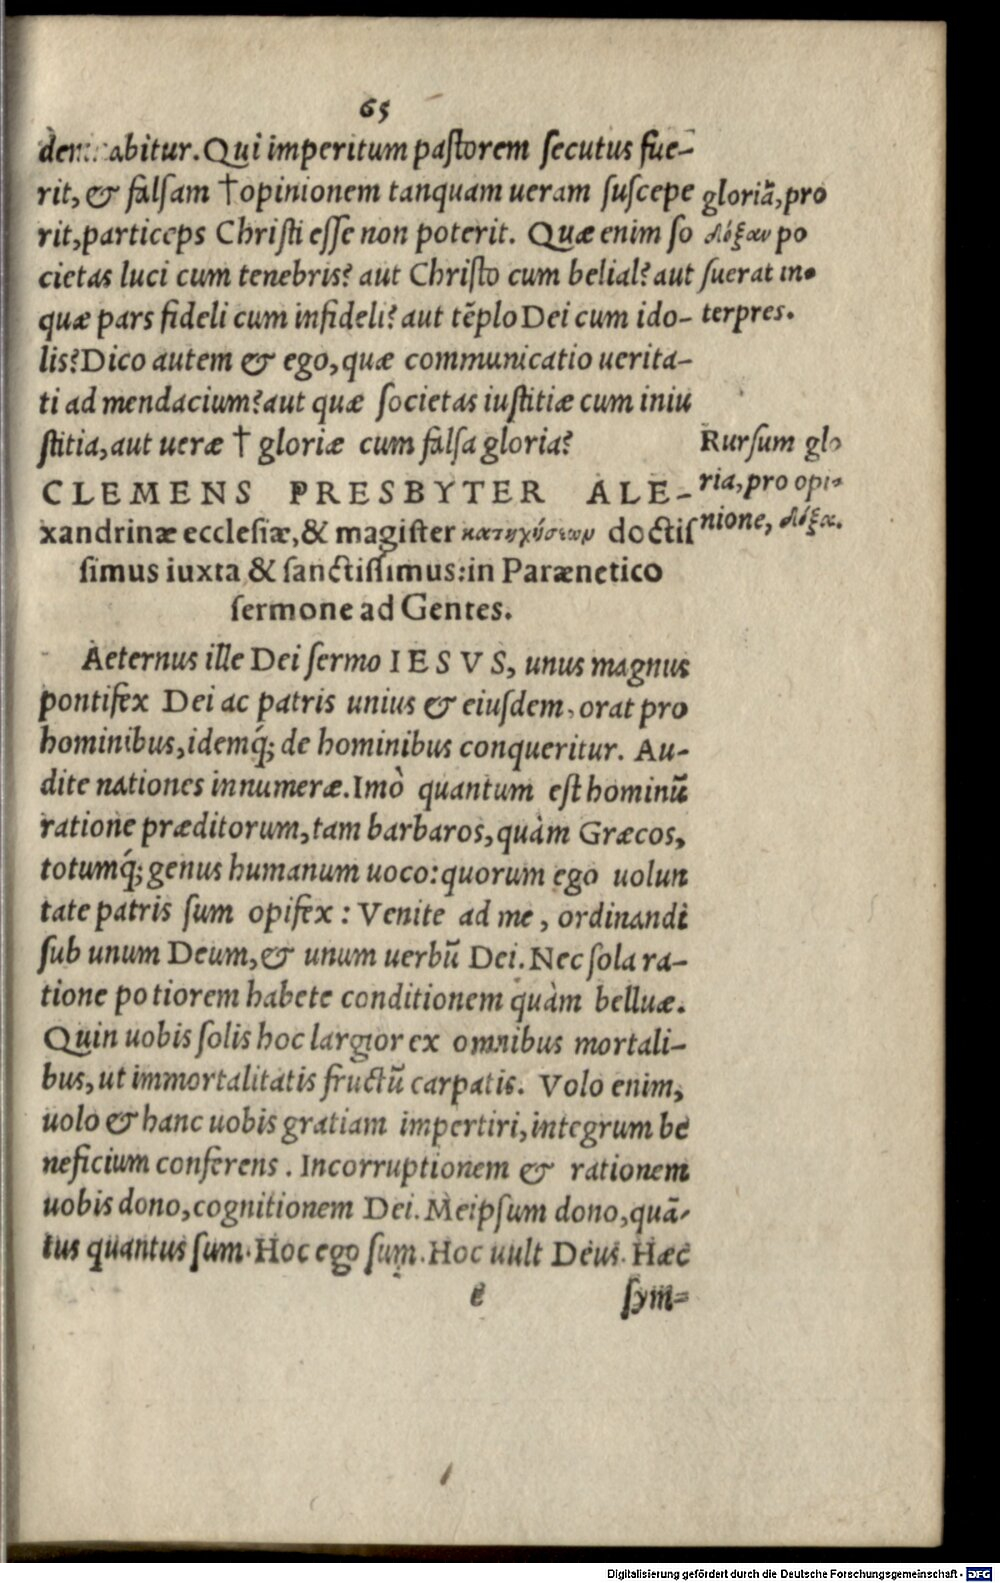 65
abitur. Qui imperitum paſtorem ſecutus fue-
rit, & falſam † opinionem tanquam ueram ſuſcepe
rit, particeps Chriſti eſſe non poterit. Quæ enim ſo
cietas luci cum tenebris? aut Chriſto cum belial? aut
quæ pars fideli cum infideli? aut tẽplo Dei cum ido-
lis? Dico autem & ego, quæ communicatio uerita-
ti ad mendacium? aut quæ ſocietas iuſtitiæ cum iniu
ſtitia, aut ueræ † gloriæ cum falſa gloria?
gloriã, pro
δόξαν po
ſuerat in-
terpres.
Rurſum glo
ria, pro opi-
nione, δόξα.
CLEMENS PRESBYTER ALE-
xandrinæ eccleſiæ, & magiſter κατηχήσεων doctiſ
ſimus iuxta & ſanctiſſimus: in Parænetico
ſermone ad Gentes.
Aeternus ille Dei ſermo IESVS, unus magnus
pontifex Dei ac patris unius & eiuſdem, orat pro
hominibus, idemq́; de hominibus conqueritur. Au-
dite nationes innumeræ. Imò quantum eſt hominũ
ratione præditorum, tam barbaros, quàm Græcos,
totumq́; genus humanum uoco: quorum ego uolun
tate patris ſum opifex: Venite ad me, ordinandi
ſub unum Deum, & unum uerbũ Dei. Nec ſola ra-
tione potiorem habete conditionem quàm belluæ.
Quin uobis ſolis hoc largior ex omnibus mortali-
bus, ut immortalitatis fructũ carpatis. Volo enim,
uolo & hanc uobis gratiam impertiri, integrum be
neficium conferens. Incorruptionem & rationem
uobis dono, cognitionem Dei. Meipſum dono, quã-
tus quantus ſum. Hoc ego ſum. Hoc uult Deus. Hæc
e ſym-
Digitalisierung gefördert durch die Deutsche Forschungsgemeinschaft - DFG